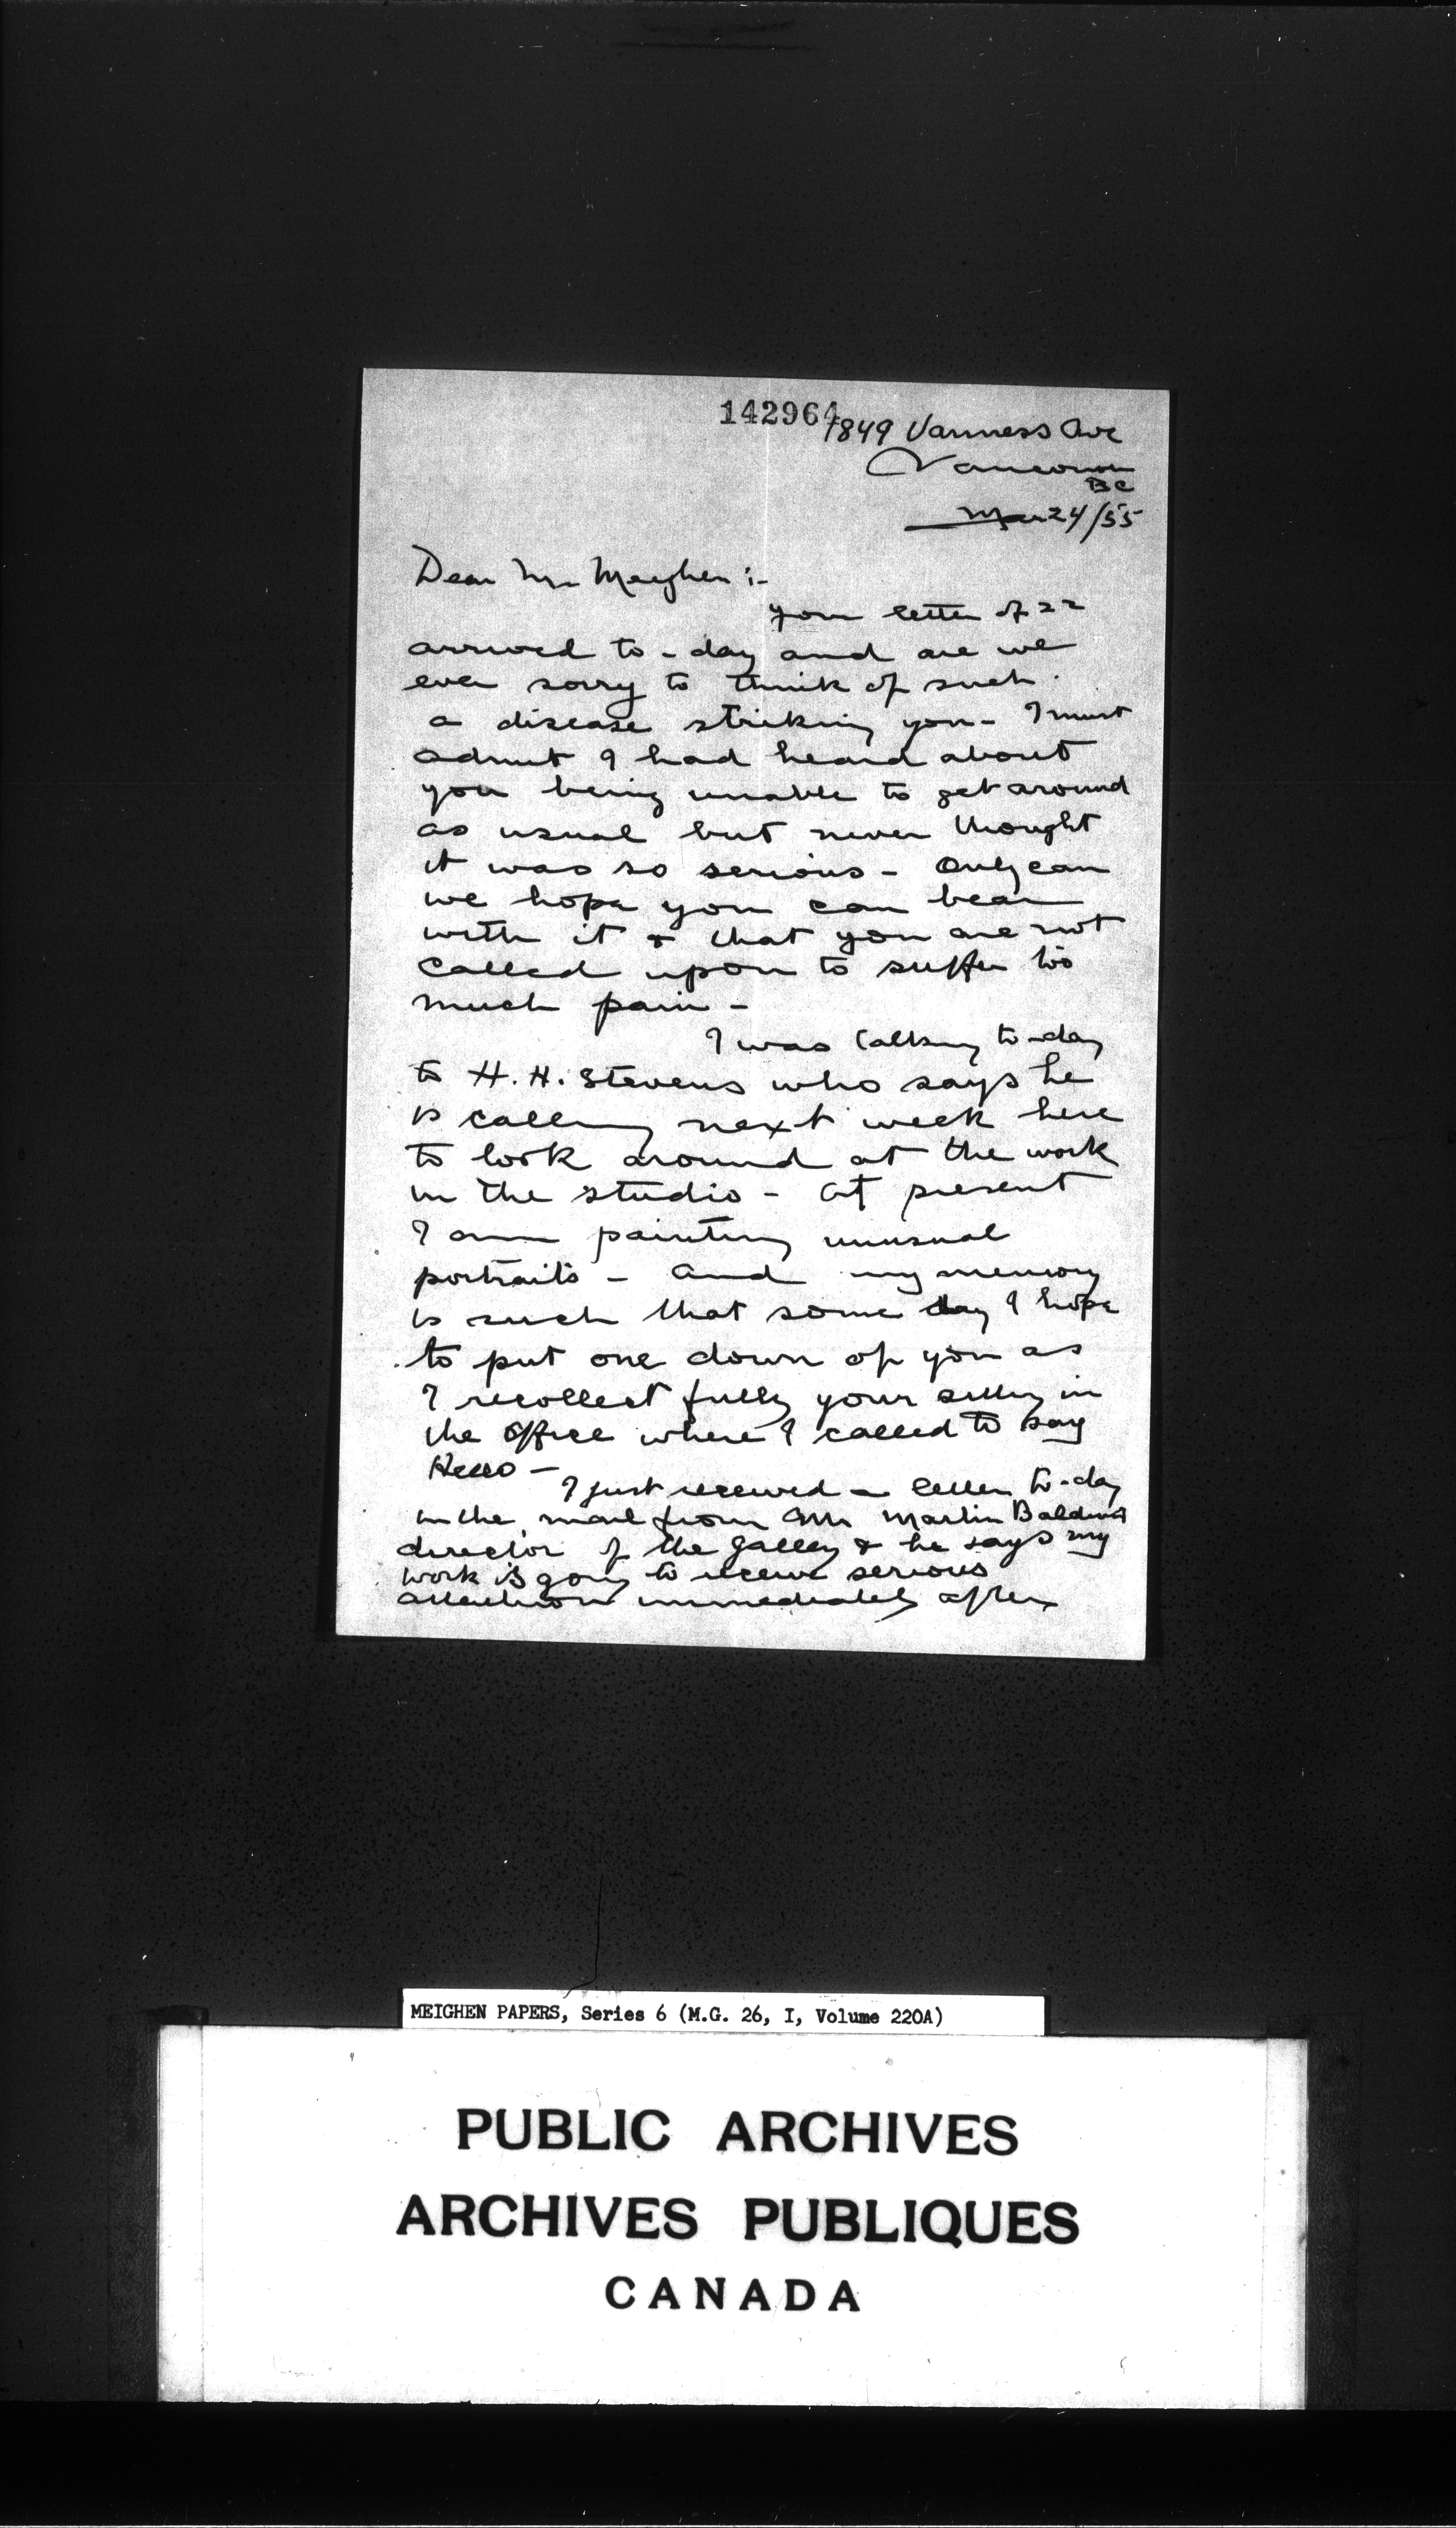 142964
1849 Vanness Ave
Vancouver
BC
Mar 24/55
Dear Mr Meighen :-
your letter of 22
arrived to-day and are we
ever sorry to think of such
a disease striking you - I must
admit I had heard about
you being unable to get around
as usual but never thought
it was so serious - Only can
we hope you can bear
with it & that you are not
called upon to suffer too
much pain -
I was talking to-day
to H. H. Stevens who says he
is calling next week here
to look around at the work
in the studio - At present
I am painting unusual
portraits - And my memory
is such that some day I hope
to put one down of you as
I recollect fully your sitting in
the office where I called to say
Hello -
I just received a letter to-day
in the mail from Mr Martin Baldwin
director of the Gallery & he says my
work is going to receive serious
attention immediately after
MEIGHEN PAPERS, Series 6 (M.G. 26, I, Volume 220A)
PUBLIC ARCHIVES
ARCHIVES PUBLIQUES
CANADA